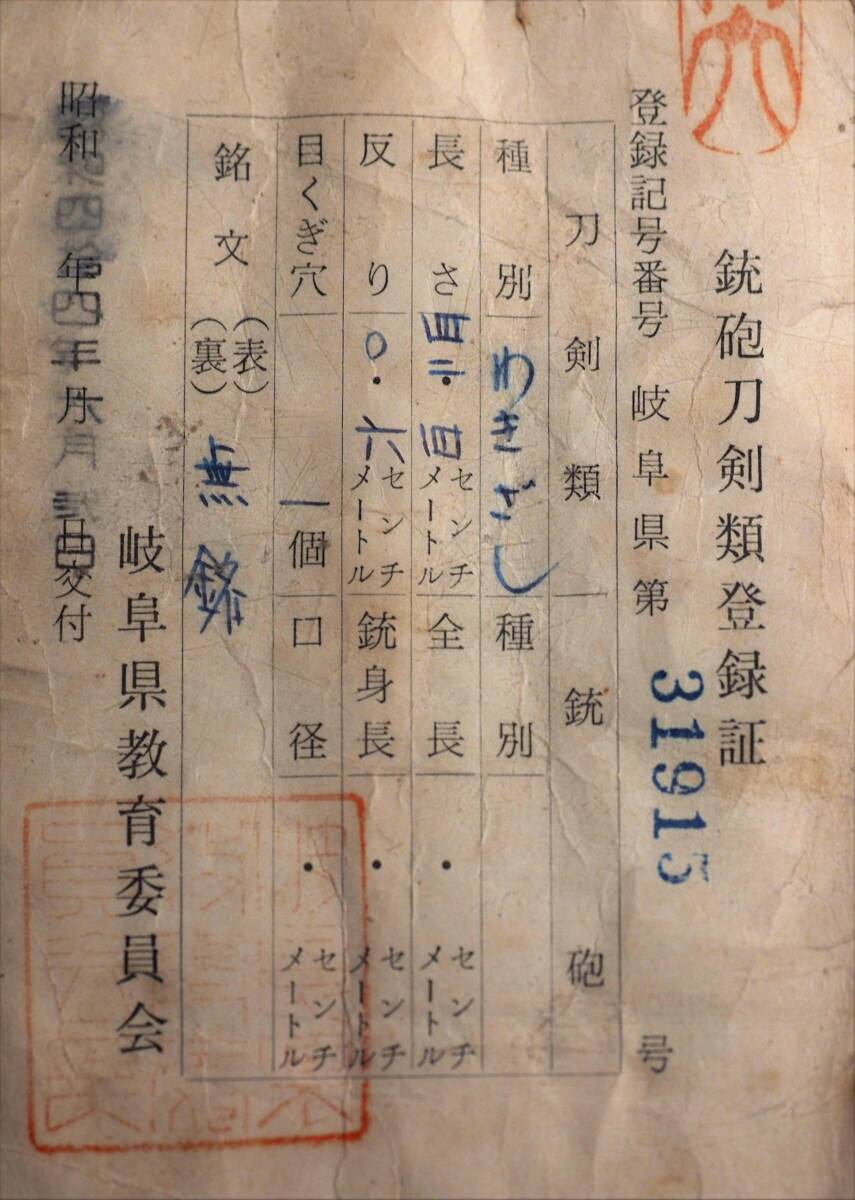 銃砲刀剣類登録証
登録記号番号 岐阜県第 31915 号
刀剣類 銃砲
種別 わきざし 種別
長さ 四二・四 センチメートル 全長 ・ センチメートル
反り 〇・六 センチメートル 銃身長 ・ センチメートル
目くぎ穴 一個 口径 ・ センチメートル
銘文 (表)
(裏) 無銘
岐阜県教育委員会
昭和四拾四年 月 日交付